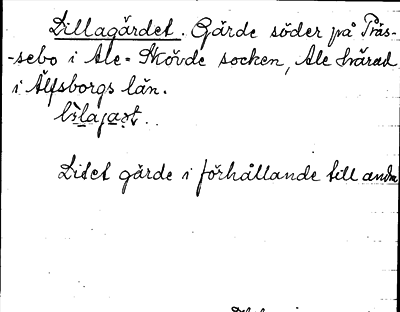 Lillagärdet. Gärde söder på Präs-
-sebo i Ale-Skövde socken, Ale härad
i Älfsborgs län.
Litet gärde i förhållande till andra